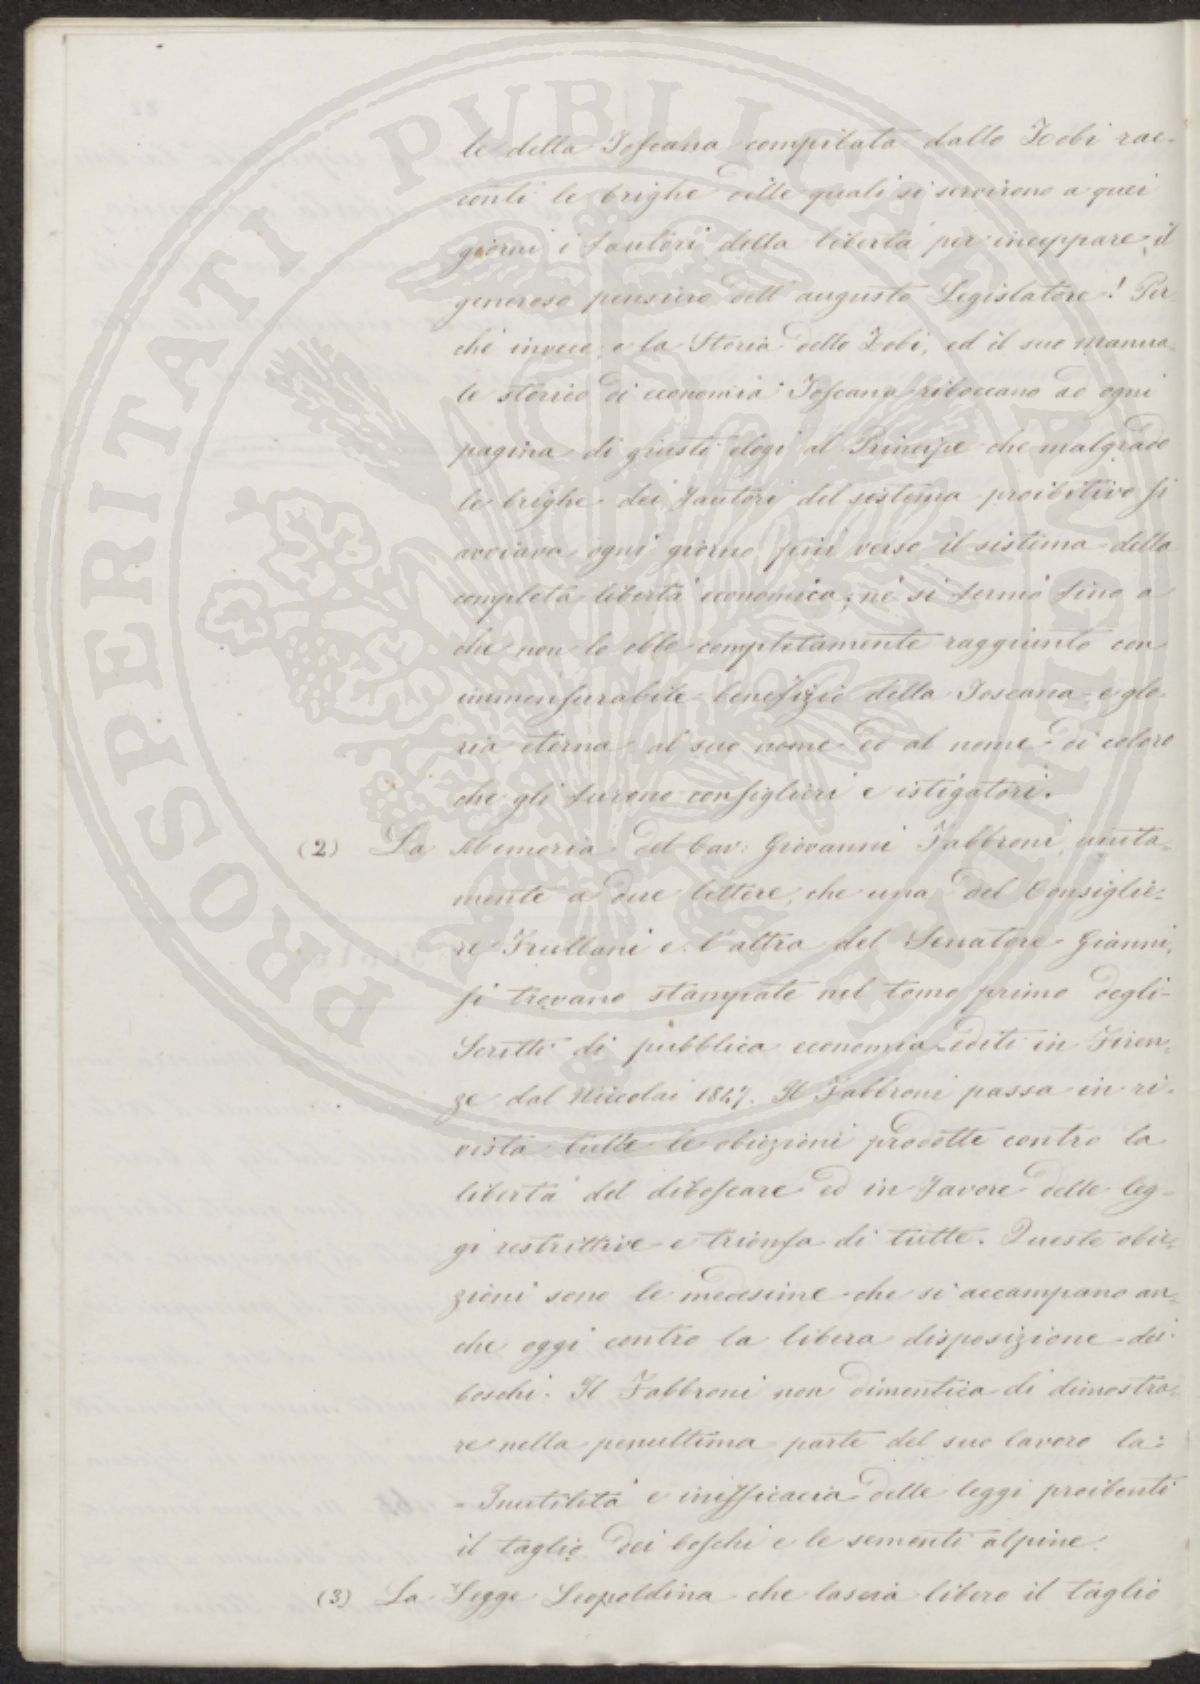 le della Toscana compilata dallo Zobi rac-
conti le brighe delle quali si servirono a quei
giorni i fautori della libertà per inceppare il
generoso pensiero dell'augusto Legislatore! Per
chè invece e la Storia dello Zobi, ed il suo manua-
le storico di economia Toscana riboccano ad ogni
pagina di giusti elogi al Principe che malgrado
le brighe dei fautori del sistema proibitivo si
avviava ogni giorno più verso il sistema della
completa libertà economica; nè si fermò fino a
che non lo ebbe completamente raggiunto con
immensurabile benefizio della Toscana e glo-
ria eterna al suo nome ed al nome di coloro
che gli furono consiglieri e istigatori.
(2) La Memoria del Cav: Giovanni Fabbroni, unita-
mente a due lettere, che una del Consiglie-
re Frullani e l'altra del Senatore Gianni,
si trovano stampate nel tomo primo degli
Scritti di pubblica economia editi in Firen-
ze dal Niccolai 1847. Il Fabbroni passa in ri-
vista tutte le obiezioni prodotte contro la
libertà del diboscare ed in favore delle leg-
gi restrittive e trionfa di tutte. Queste obie-
zioni sono le medesime che si accampano an-
che oggi contro la libera disposizione dei
boschi. Il Fabbroni non dimentica di dimostra-
re nella penultima parte del suo lavoro la:
= Inutilità e inefficacia delle leggi proibenti
il taglio dei boschi e le sementi alpine.
(3) La Legge Leopoldina che lascia libero il taglio
PROSPERITATI PUBLICAE AUGENDAE